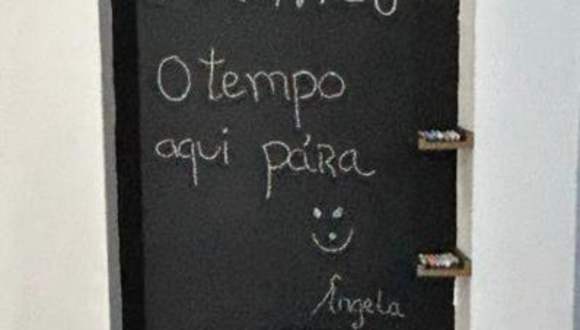 O tempo
aqui pára
Ângela